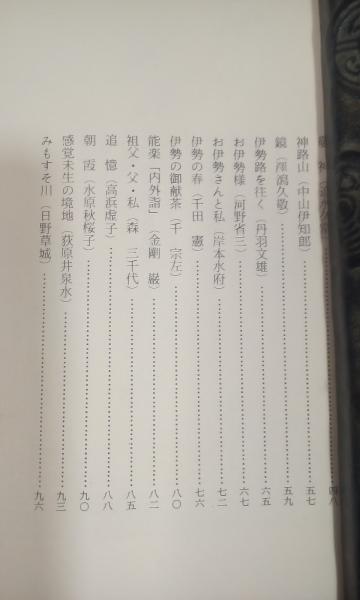 四八
神路山（中山伊知郎）…………五七
鏡（澤瀉久敬）…………五九
伊勢路を往く（丹羽文雄）…………六五
お伊勢様（河野省三）…………六七
お伊勢さんと私（岸本水府）…………七二
伊勢の春（千田　憲）…………七六
伊勢の御献茶（千　宗左）…………八〇
能楽「内外詣」（金剛　巌）…………八二
祖父・父・私（森　三千代）…………八五
追　憶（高浜虚子）…………八八
朝　霞（水原秋桜子）…………九〇
感覚未生の境地（荻原井泉水）…………九三
みもすそ川（日野草城）…………九六